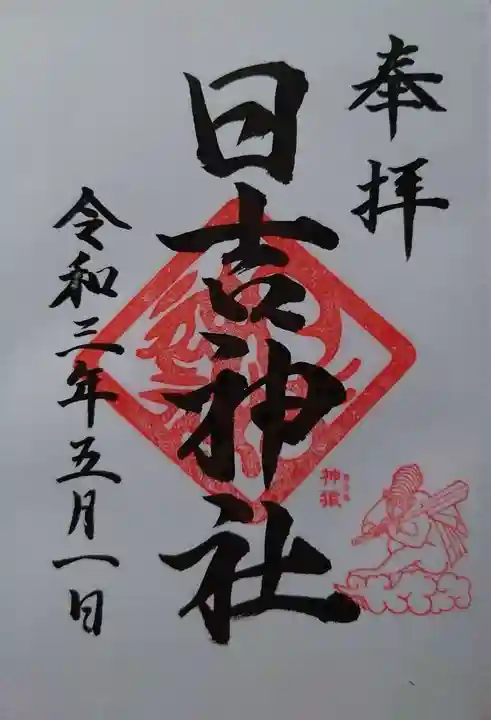 奉拝
日吉神社
神猿
令和三年五月一日